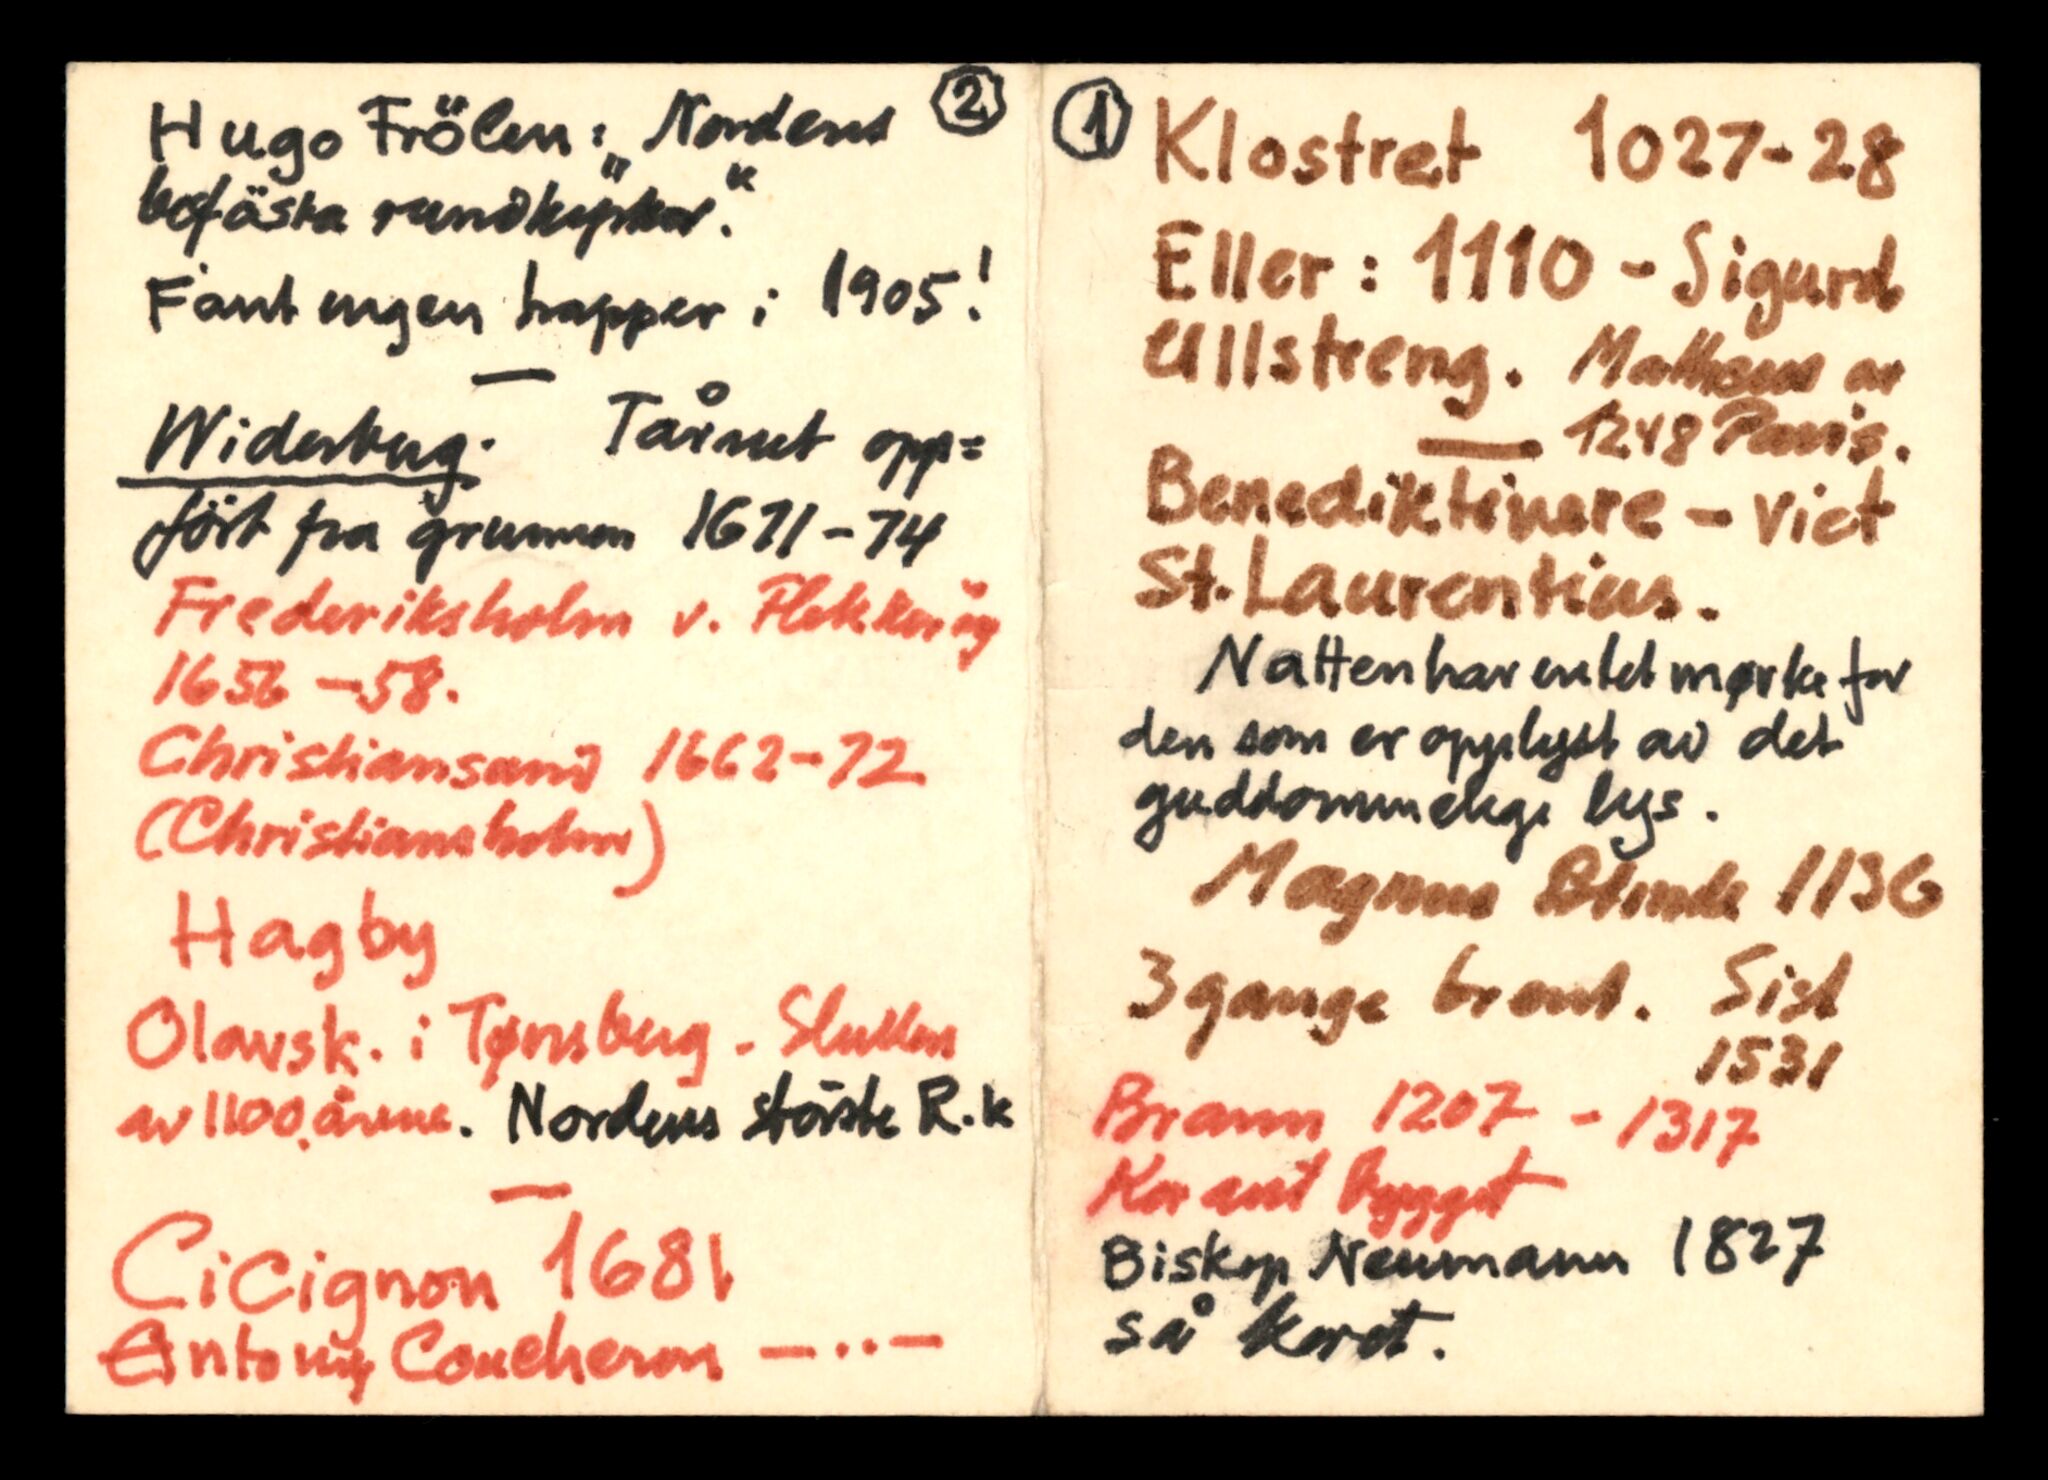 ① Klostret 1027-28
Eller: 1110 - Sigurd
Ullstreng. Matheus av
1248 Paris.
Benediktinere - viet
St. Laurentius.
Natten har intet mørke for
den som er opplyst av det
guddommelige lys.
Magnus Blinde 1136
3 gange brent. Sist
1531
Brann 1207 - 1317
Kor ant bygget
Biskop Neumann 1827
så koret.
②
Hugo Frölen: "Nordens
befästa rundkyrkor."
Fant ingen trapper i 1905!
Widerberg. Tårnet opp=
fört fra grunnen 1671-74
Frederiksholm v. Flekkeröy
1656-58.
Christiansand 1662-72
(Christiansholm)
Hagby
Olavsk. i Tønsberg - Slutten
av 1100 årene. Nordens störste R.k
Cicignon 1681
Antony Coucheron — .. —